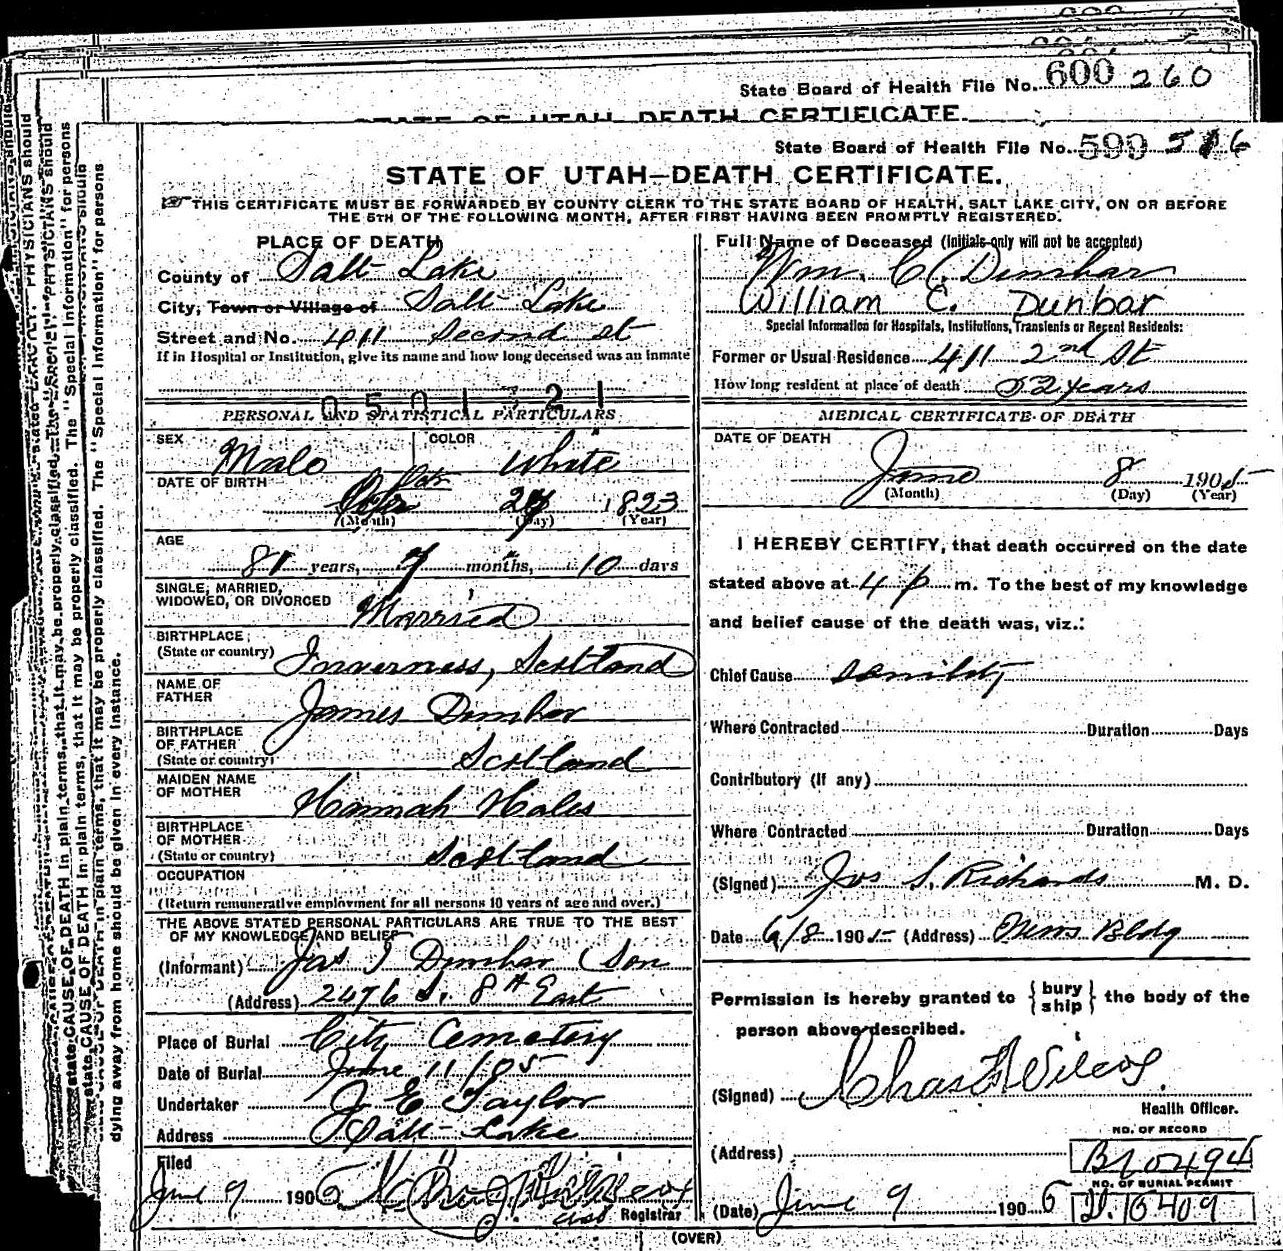 State Board of Health File No. 600 260
STATE OF UTAH DEATH CERTIFICATE.
State Board of Health File No. 599 516
STATE OF UTAH—DEATH CERTIFICATE.
THIS CERTIFICATE MUST BE FORWARDED BY COUNTY CLERK TO THE STATE BOARD OF HEALTH, SALT LAKE CITY, ON OR BEFORE
THE 5TH OF THE FOLLOWING MONTH, AFTER FIRST HAVING BEEN PROMPTLY REGISTERED.
PLACE OF DEATH
County of Salt Lake
City, Town or Village of Salt Lake
Street and No. 411 Second St
If in Hospital or Institution, give its name and how long deceased was an inmate
0501321
PERSONAL AND STATISTICAL PARTICULARS
SEX Male COLOR White
DATE OF BIRTH
Oct 1823
(Month) (Day) (Year)
AGE
81 years, 7 months, 10 days
SINGLE, MARRIED,
WIDOWED, OR DIVORCED Married
BIRTHPLACE
(State or country) Inverness, Scotland
NAME OF
FATHER James Dunbar
BIRTHPLACE
OF FATHER
(State or country) Scotland
MAIDEN NAME
OF MOTHER Hannah Hales
BIRTHPLACE
OF MOTHER
(State or country) Scotland
OCCUPATION
(Return remunerative employment for all persons 10 years of age and over.)
THE ABOVE STATED PERSONAL PARTICULARS ARE TRUE TO THE BEST
OF MY KNOWLEDGE AND BELIEF
(Informant) Jas I Dunbar (Son
(Address) 2476 S. 8th East
Place of Burial City Cemetery
Date of Burial June 11/05
Undertaker J E Taylor
Address Salt Lake
Filed
June 9 1905
Registrar
Full Name of Deceased (Initials only will not be accepted)
Wm. C. Dunbar
William C. Dunbar
Special Information for Hospitals, Institutions, Transients or Recent Residents:
Former or Usual Residence 411 2nd St
How long resident at place of death 52 years
MEDICAL CERTIFICATE OF DEATH
DATE OF DEATH
June 8 1905
(Month) (Day) (Year)
I HEREBY CERTIFY, that death occurred on the date
stated above at 4 p m. To the best of my knowledge
and belief cause of the death was, viz.:
Chief Cause senility
Where Contracted Duration Days
Contributory (if any)
Where Contracted Duration Days
(Signed) Jos S. Richards M. D.
Date 6/8 1905 (Address) News Bldg
Permission is hereby granted to { bury ship } the body of the
person above described.
(Signed) Chas F Wilcox
Health Officer.
NO. OF RECORD
(Address) B10494
NO. OF BURIAL PERMIT
(Date) June 9 1905 D.15409
(OVER)
state CAUSE OF DEATH in plain terms, that it may be properly classified. The "Special Information" for persons
dying away from home should be given in every instance.